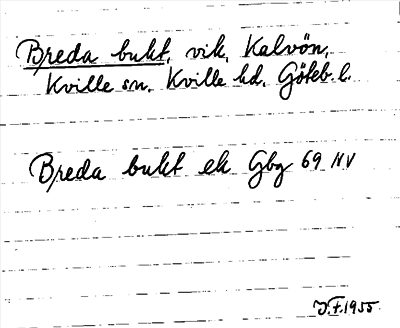 Breda bukt, vik, Kalvön,
Kville sn, Kville hd, Göteb. l.
Breda bukt ek Gbg 69 NV
J.F. 1955